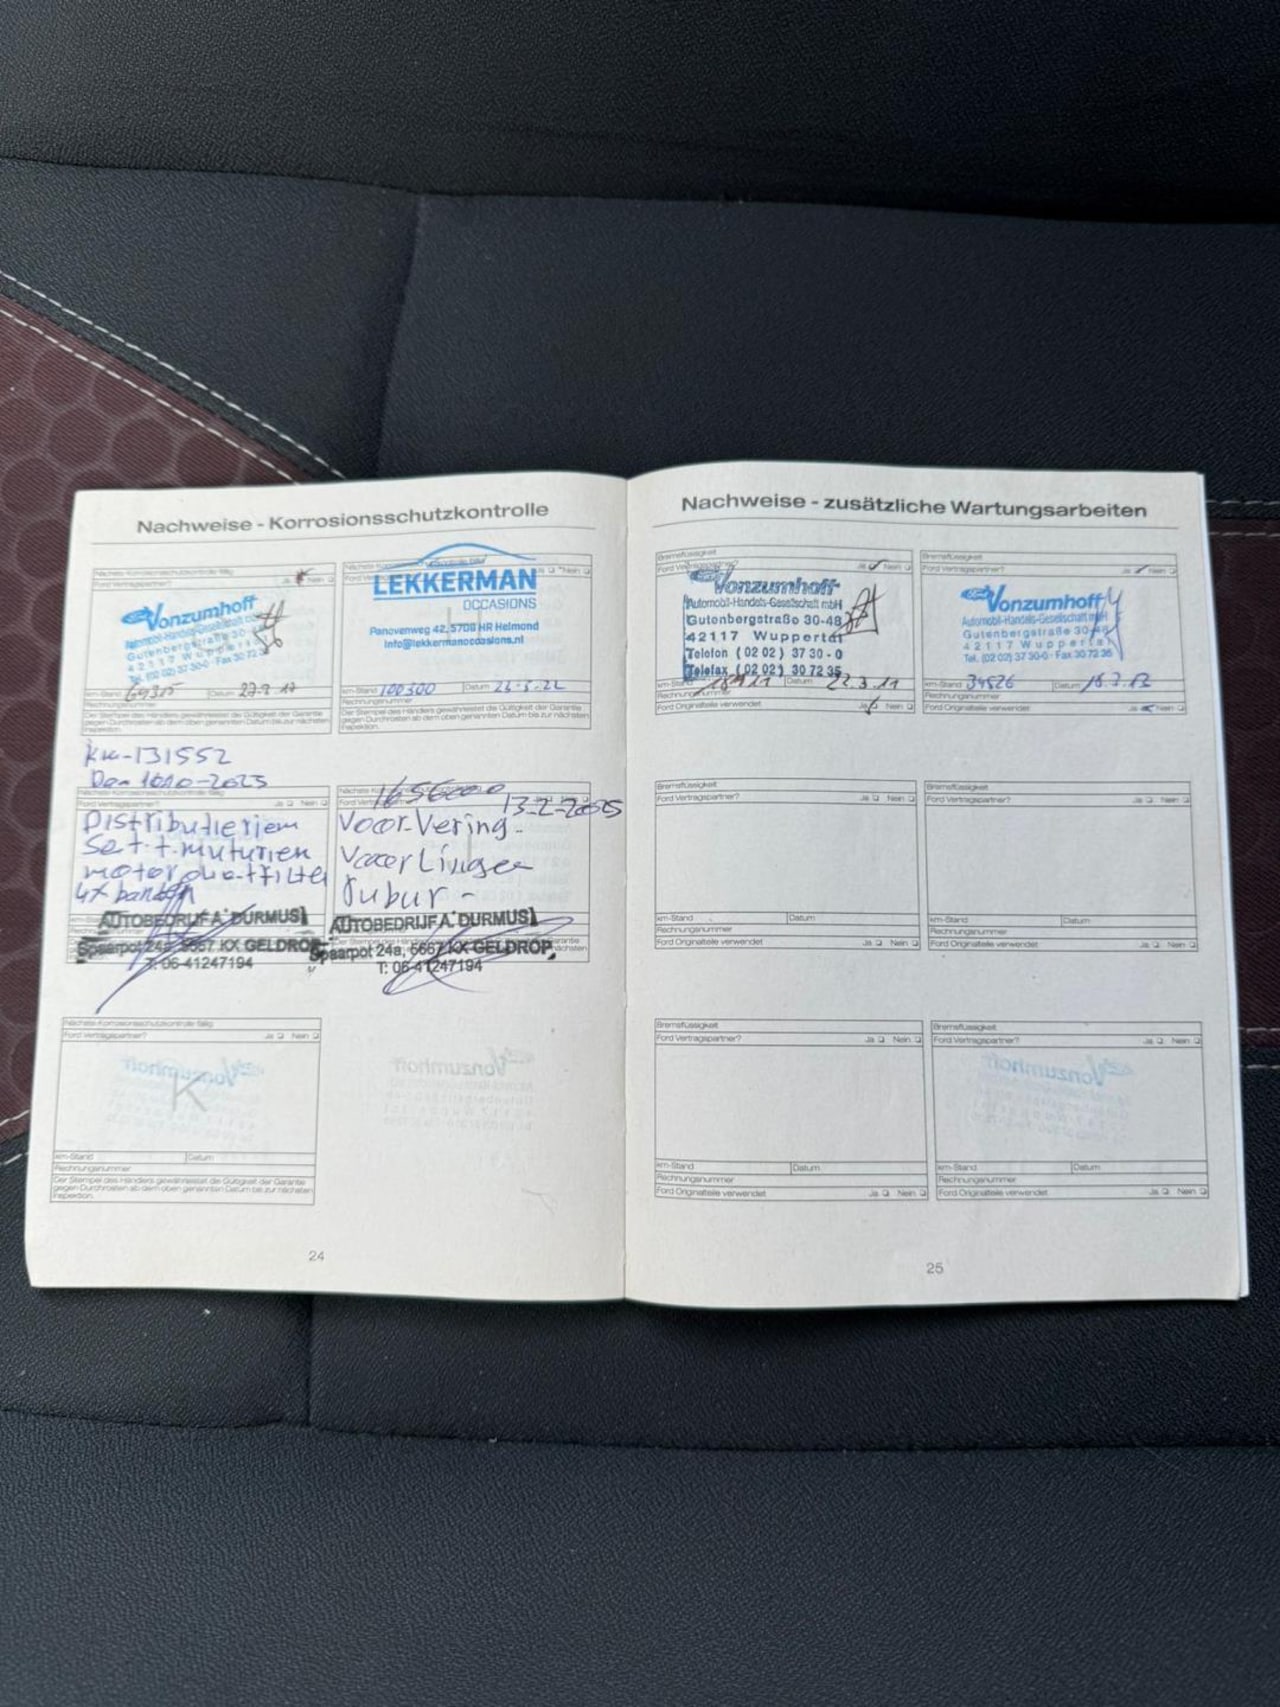 Nachweise - Korrosionsschutzkontrolle
Nächste Korrosionsschutzkontrolle fällig
Ford Vertragspartner? Ja Nein
Vonzumhoff
Automobil-Handels-Gesellschaft
Gutenbergstraße 30-
42117 Wupper
Tel. (02 02) 37 30-0 · Fax 30 72 36
km-Stand Datum
Rechnungsnummer
Der Stempel des Händlers gewährleistet die Gültigkeit der Garantie
gegen Durchrosten ab dem oben genannten Datum bis zur nächsten
Inspektion.
Ja Nein
LEKKERMAN
OCCASIONS
Panovenweg 42, 5708 HR Helmond
Info@lekkermanoccasions.nl
km-Stand 100300 Datum
Rechnungsnummer
Der Stempel des Händlers gewährleistet die Gültigkeit der Garantie
gegen Durchrosten ab dem oben genannten Datum bis zur nächsten
Inspektion.
km-131552
-2023
Nächste Korrosionsschutzkontrolle fällig
Ford Vertragspartner? Ja Nein
Distributieriem
motor
4x banden
AUTOBEDRIJF A. DURMUS
Spaarpot 24a, 5667 KX GELDROP
T: 06-41247194
13-2-2025
Voor Vering
AUTOBEDRIJF A. DURMUS
Spaarpot 24a, 5667 KX GELDROP
T: 06-41247194
Nächste Korrosionsschutzkontrolle fällig
Ford Vertragspartner? Ja Nein
K
km-Stand Datum
Rechnungsnummer
Der Stempel des Händlers gewährleistet die Gültigkeit der Garantie
gegen Durchrosten ab dem oben genannten Datum bis zur nächsten
Inspektion.
24
Nachweise - zusätzliche Wartungsarbeiten
Bremsflüssigkeit
Ja Nein
Vonzumhoff
Automobil-Handels-Gesellschaft mbH
Gutenbergstraße 30-48
42117 Wuppertal
Telefon (02 02) 37 30 - 0
Telefax (02 02) 30 72 36
Datum 22.3.11
Rechnungsnummer
Ford Originalteile verwendet Ja Nein
Bremsflüssigkeit
Ford Vertragspartner? Ja Nein
Vonzumhoff
Automobil-Handels-Gesellschaft mbH
Gutenbergstraße 30-48
42117 Wuppertal
Tel. (02 02) 37 30-0 · Fax 30 72 36
km-Stand 34526 Datum
Rechnungsnummer
Ford Originalteile verwendet Ja Nein
Bremsflüssigkeit
Ford Vertragspartner? Ja Nein
km-Stand Datum
Rechnungsnummer
Ford Originalteile verwendet Ja Nein
Bremsflüssigkeit
Ford Vertragspartner? Ja Nein
km-Stand Datum
Rechnungsnummer
Ford Originalteile verwendet Ja Nein
Bremsflüssigkeit
Ford Vertragspartner? Ja Nein
km-Stand Datum
Rechnungsnummer
Ford Originalteile verwendet Ja Nein
Bremsflüssigkeit
Ford Vertragspartner? Ja Nein
km-Stand Datum
Rechnungsnummer
Ford Originalteile verwendet Ja Nein
25